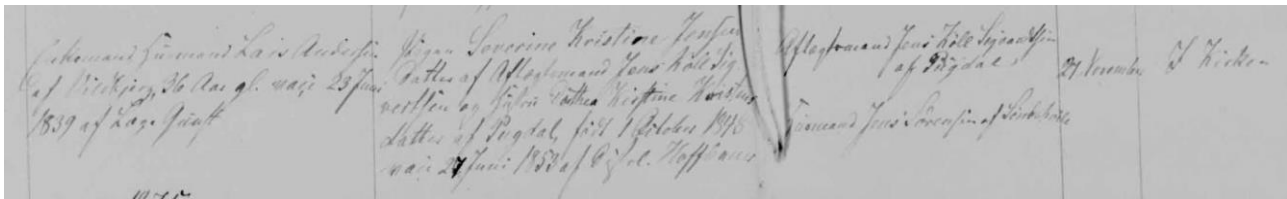 Enkemand Huusmand Lars Andersen
af Vildbjerg, 36 Aar gl. vacc 23 Juni
1839 af Læge
Pigen Severine Kristine Jensen
Datter af Aftægtsmand Jens Kølle Sig
vertsen og Hustru Dorthea Kistine
datter af Pugdal, født 1 October 1848
vacc 27 Juni 1853 af Distrl. Hoffbauer
Aftægtsmand Jens Kølle Sigvardtsen
af Pugdal
Huusmand Jens Sørensen af
21 November
I Kirken
1875